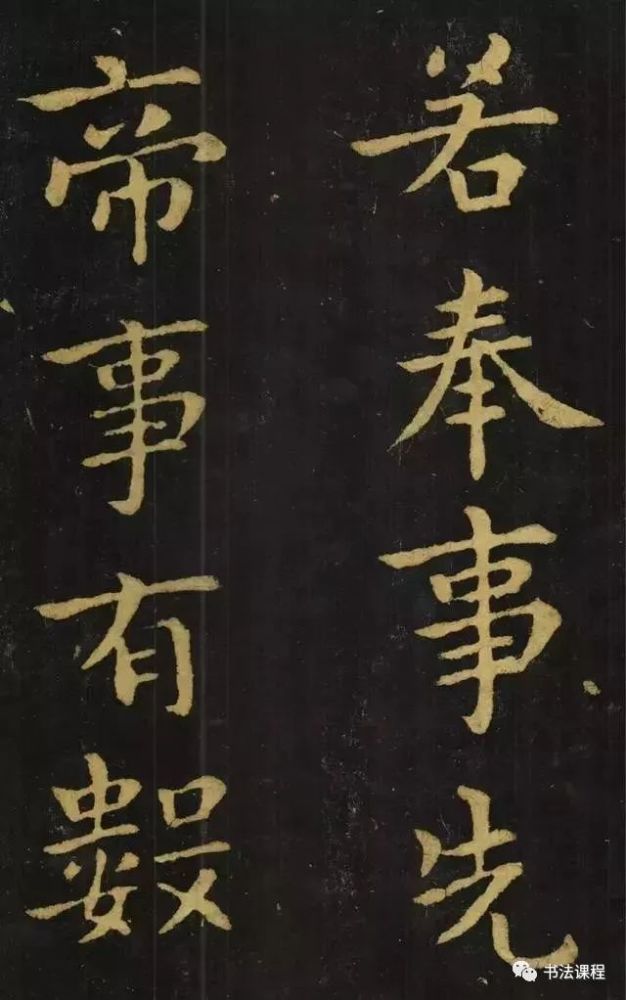 若奉事先
帝事有數
书法课程